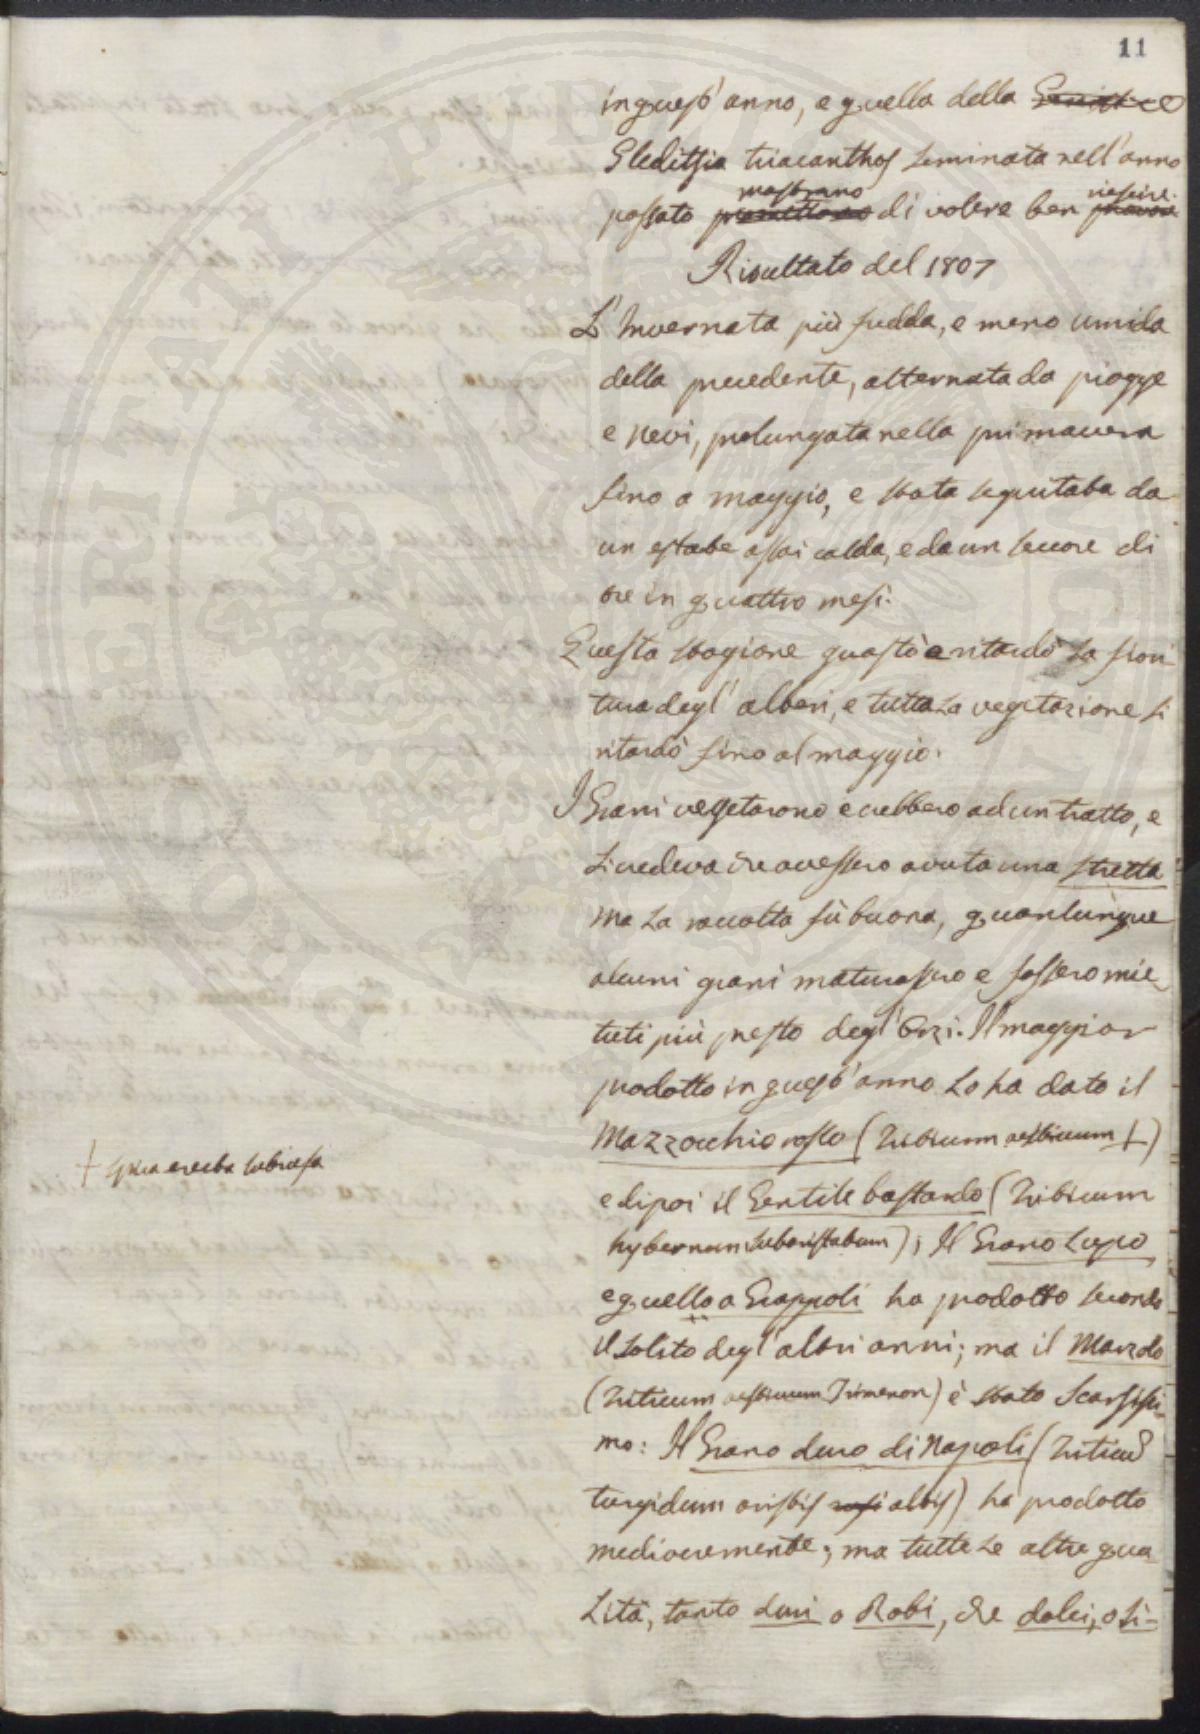 11
in quest' anno, e quella della
Gleditsia triacanthos seminata nell'anno
mostrano riescire.
passato promettono di volere ben provare
Risultato del 1807
L' Invernata più fredda, e meno umida
della precedente, alternata da piogge
e nevi, prolungata nella primavera
fino a maggio, e stata seguitata da
un estate assai calda, e da un seccore di
tre in quattro mesi.
Questa stagione guastò e ritardò la fiori
tura degl' alberi, e tutta la vegetazione si
ritardò fino al maggio.
I Grani vegetarono e crebbero ad un tratto, e
si credeva che avessero avuta una stretta
ma la raccolta fù buona, quantunque
alcuni grani maturassero e fossero mie-
tuti più presto degl' Orzi. Il maggior
prodotto in quest' anno lo ha dato il
Mazzocchio rosso (Triticum aestivum +)
+ spica erecta subvelosa
e di poi il Gentile bastardo (Triticum
hybernum subaristatum); Il Grano Lupo
e quello a Grappoli ha prodotto secondo
il solito degl' altri anni; ma il Marzolo
(Triticum aestivum Trimenon) è stato Scarsissi-
mo: Il Grano duro di Napoli (Triticum
turgidum aristis rosis albis) ha prodotto
mediocremente; ma tutte le altre qua
lità, tanto duri o Robi, che dolci, o si-